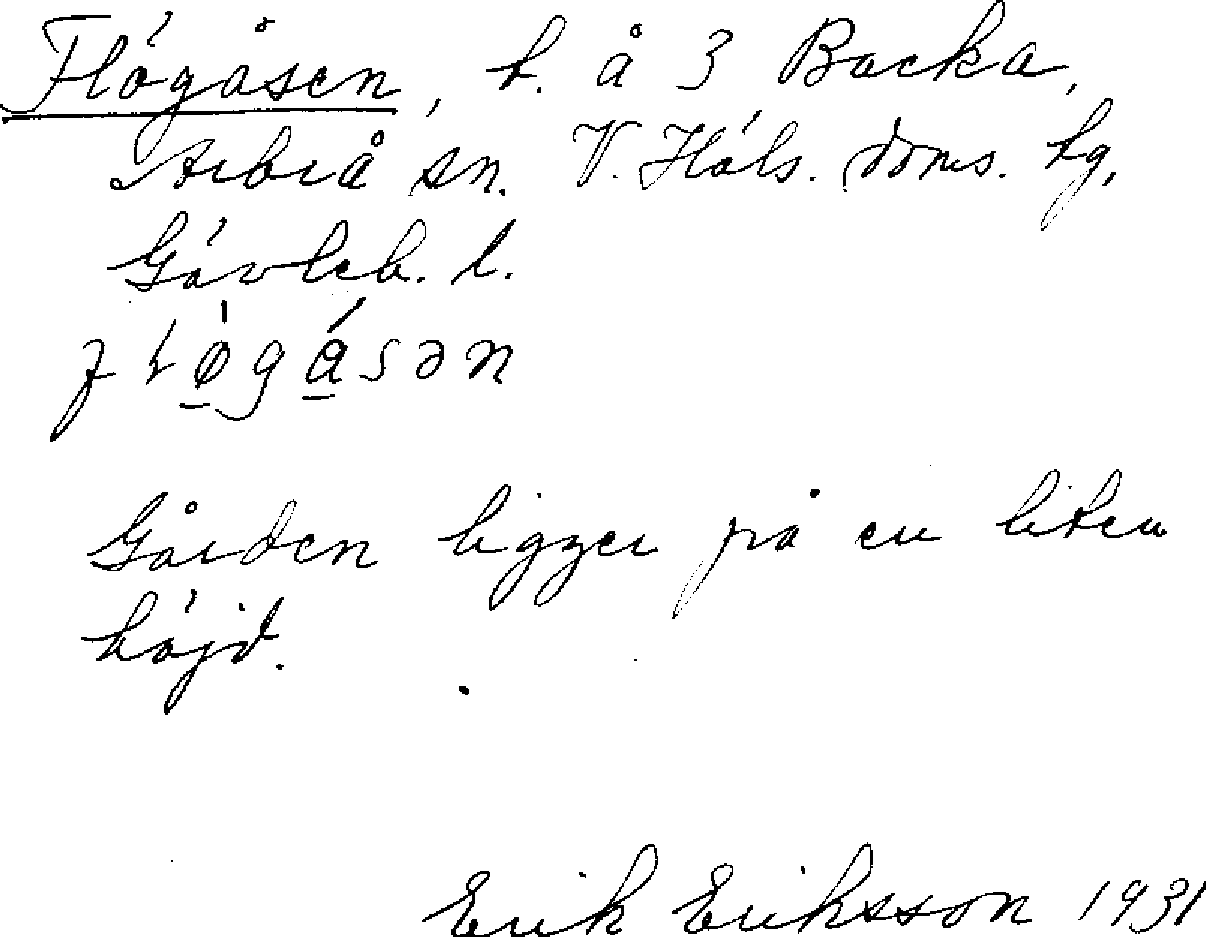 Flögåsen, h. å 3 Backa,
Arbrå sn. V. Häls. doms. hg,
Gävleb. l.
Gården ligger på en liten
höjd.
Erik Eriksson 1931